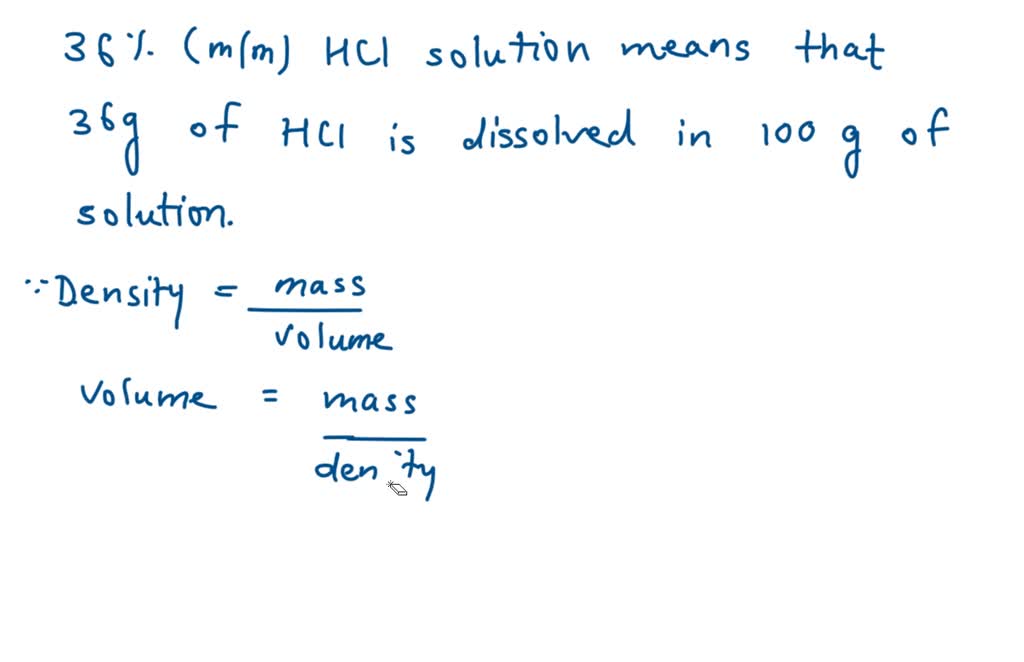 36% (m/m) HCl solution means that
36g of HCl is dissolved in 100 g of
solution.
∵ Density = mass
volume
volume = mass
den ity